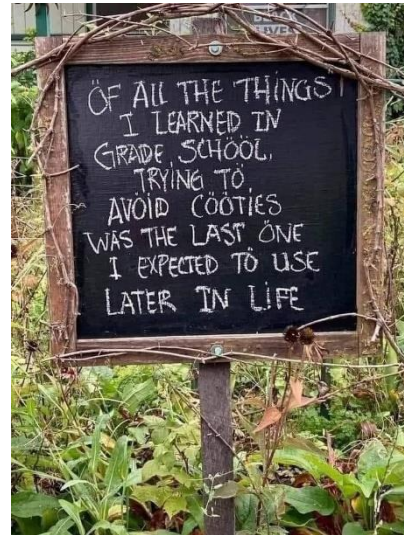 BLACK
LIVES
ÖF ALL THE THINGS
I LEARNED IN
GRADE SCHÖÖL,
TRYING TÖ
AVÖID CÖÖTIES
WAS THE LAST ÖNE
I EXPECTED TÖ USE
LATER IN LIFE